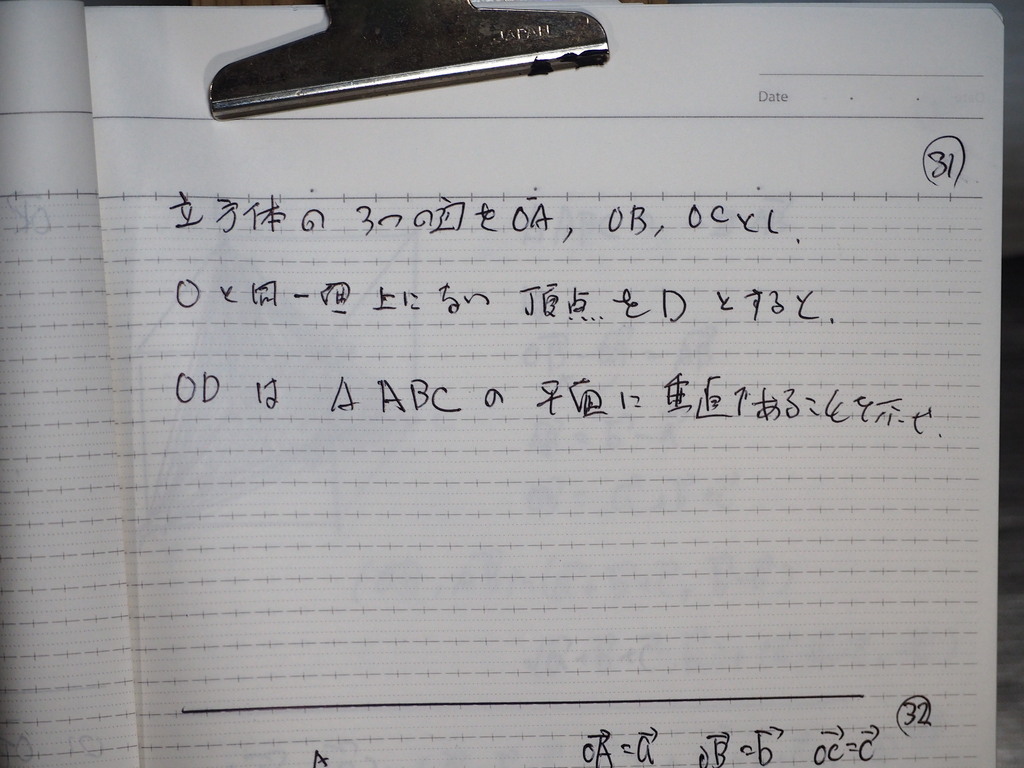 JAPAN
Date
31
立方体の3つの辺をOA, OB, OCとし.
Oと同一面上にない頂点をDとすると.
ODは AABCの平面に垂直であることを示せ.
32
A
OA=a OB=b OC=c